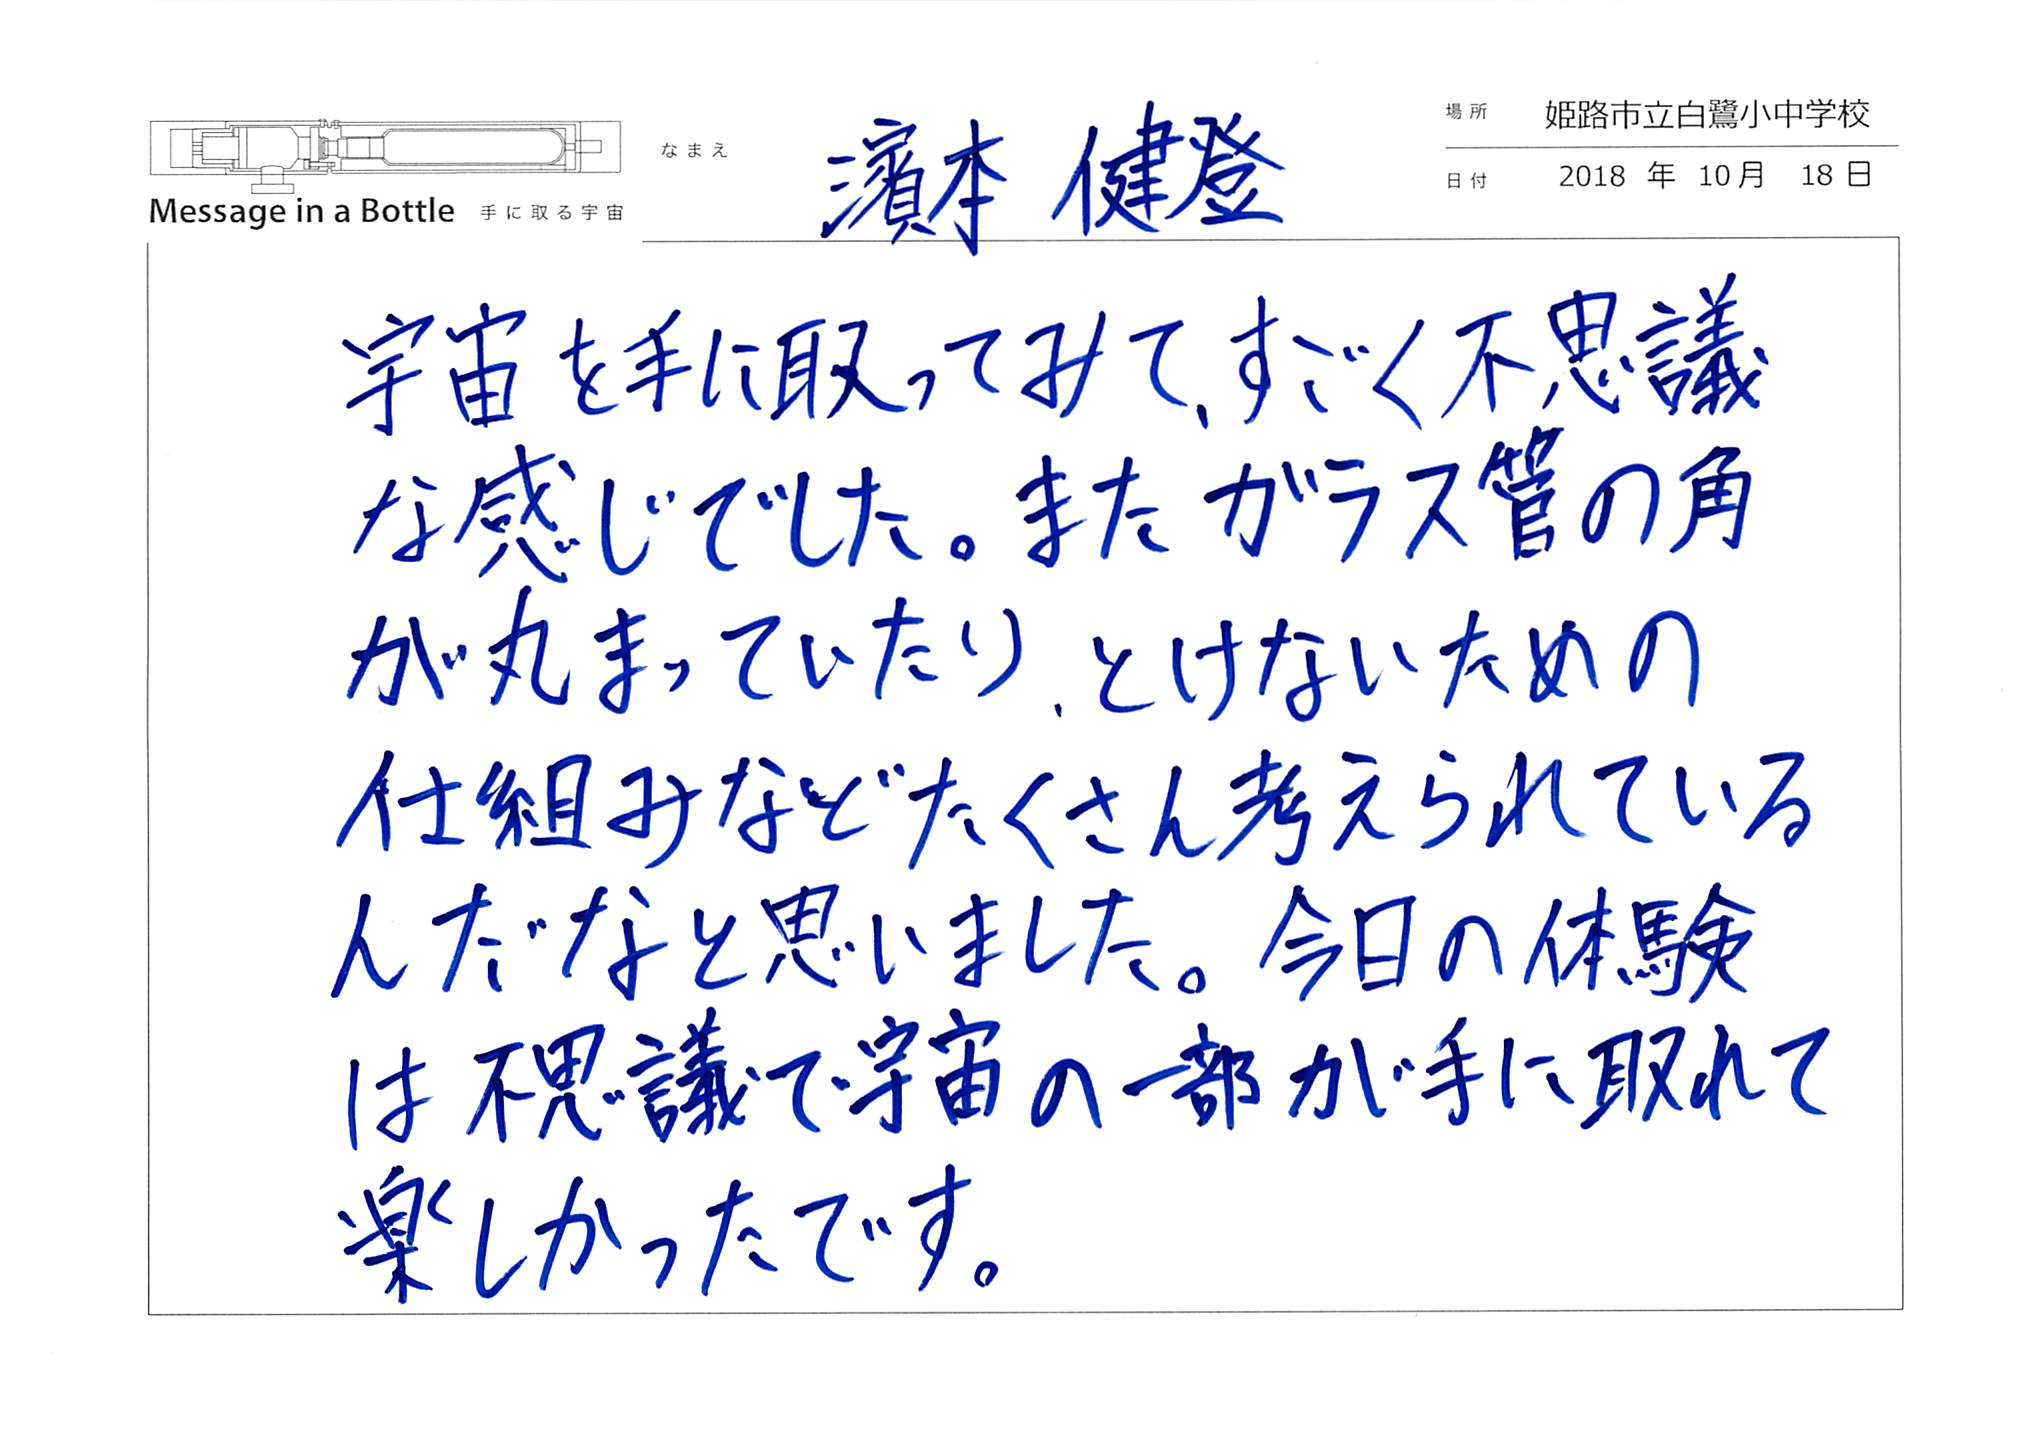 場所 姫路市立白鷺小中学校
なまえ 濱本 健登
日付 2018 年 10月 18日
Message in a Bottle 手に取る宇宙
宇宙を手に取ってみて、すごく不思議
な感じでした。またガラス管の角
が丸まっていたり、とけないための
仕組みなどたくさん考えられている
んだなと思いました。今日の体験
は不思議で宇宙の一部が手に取れて
楽しかったです。